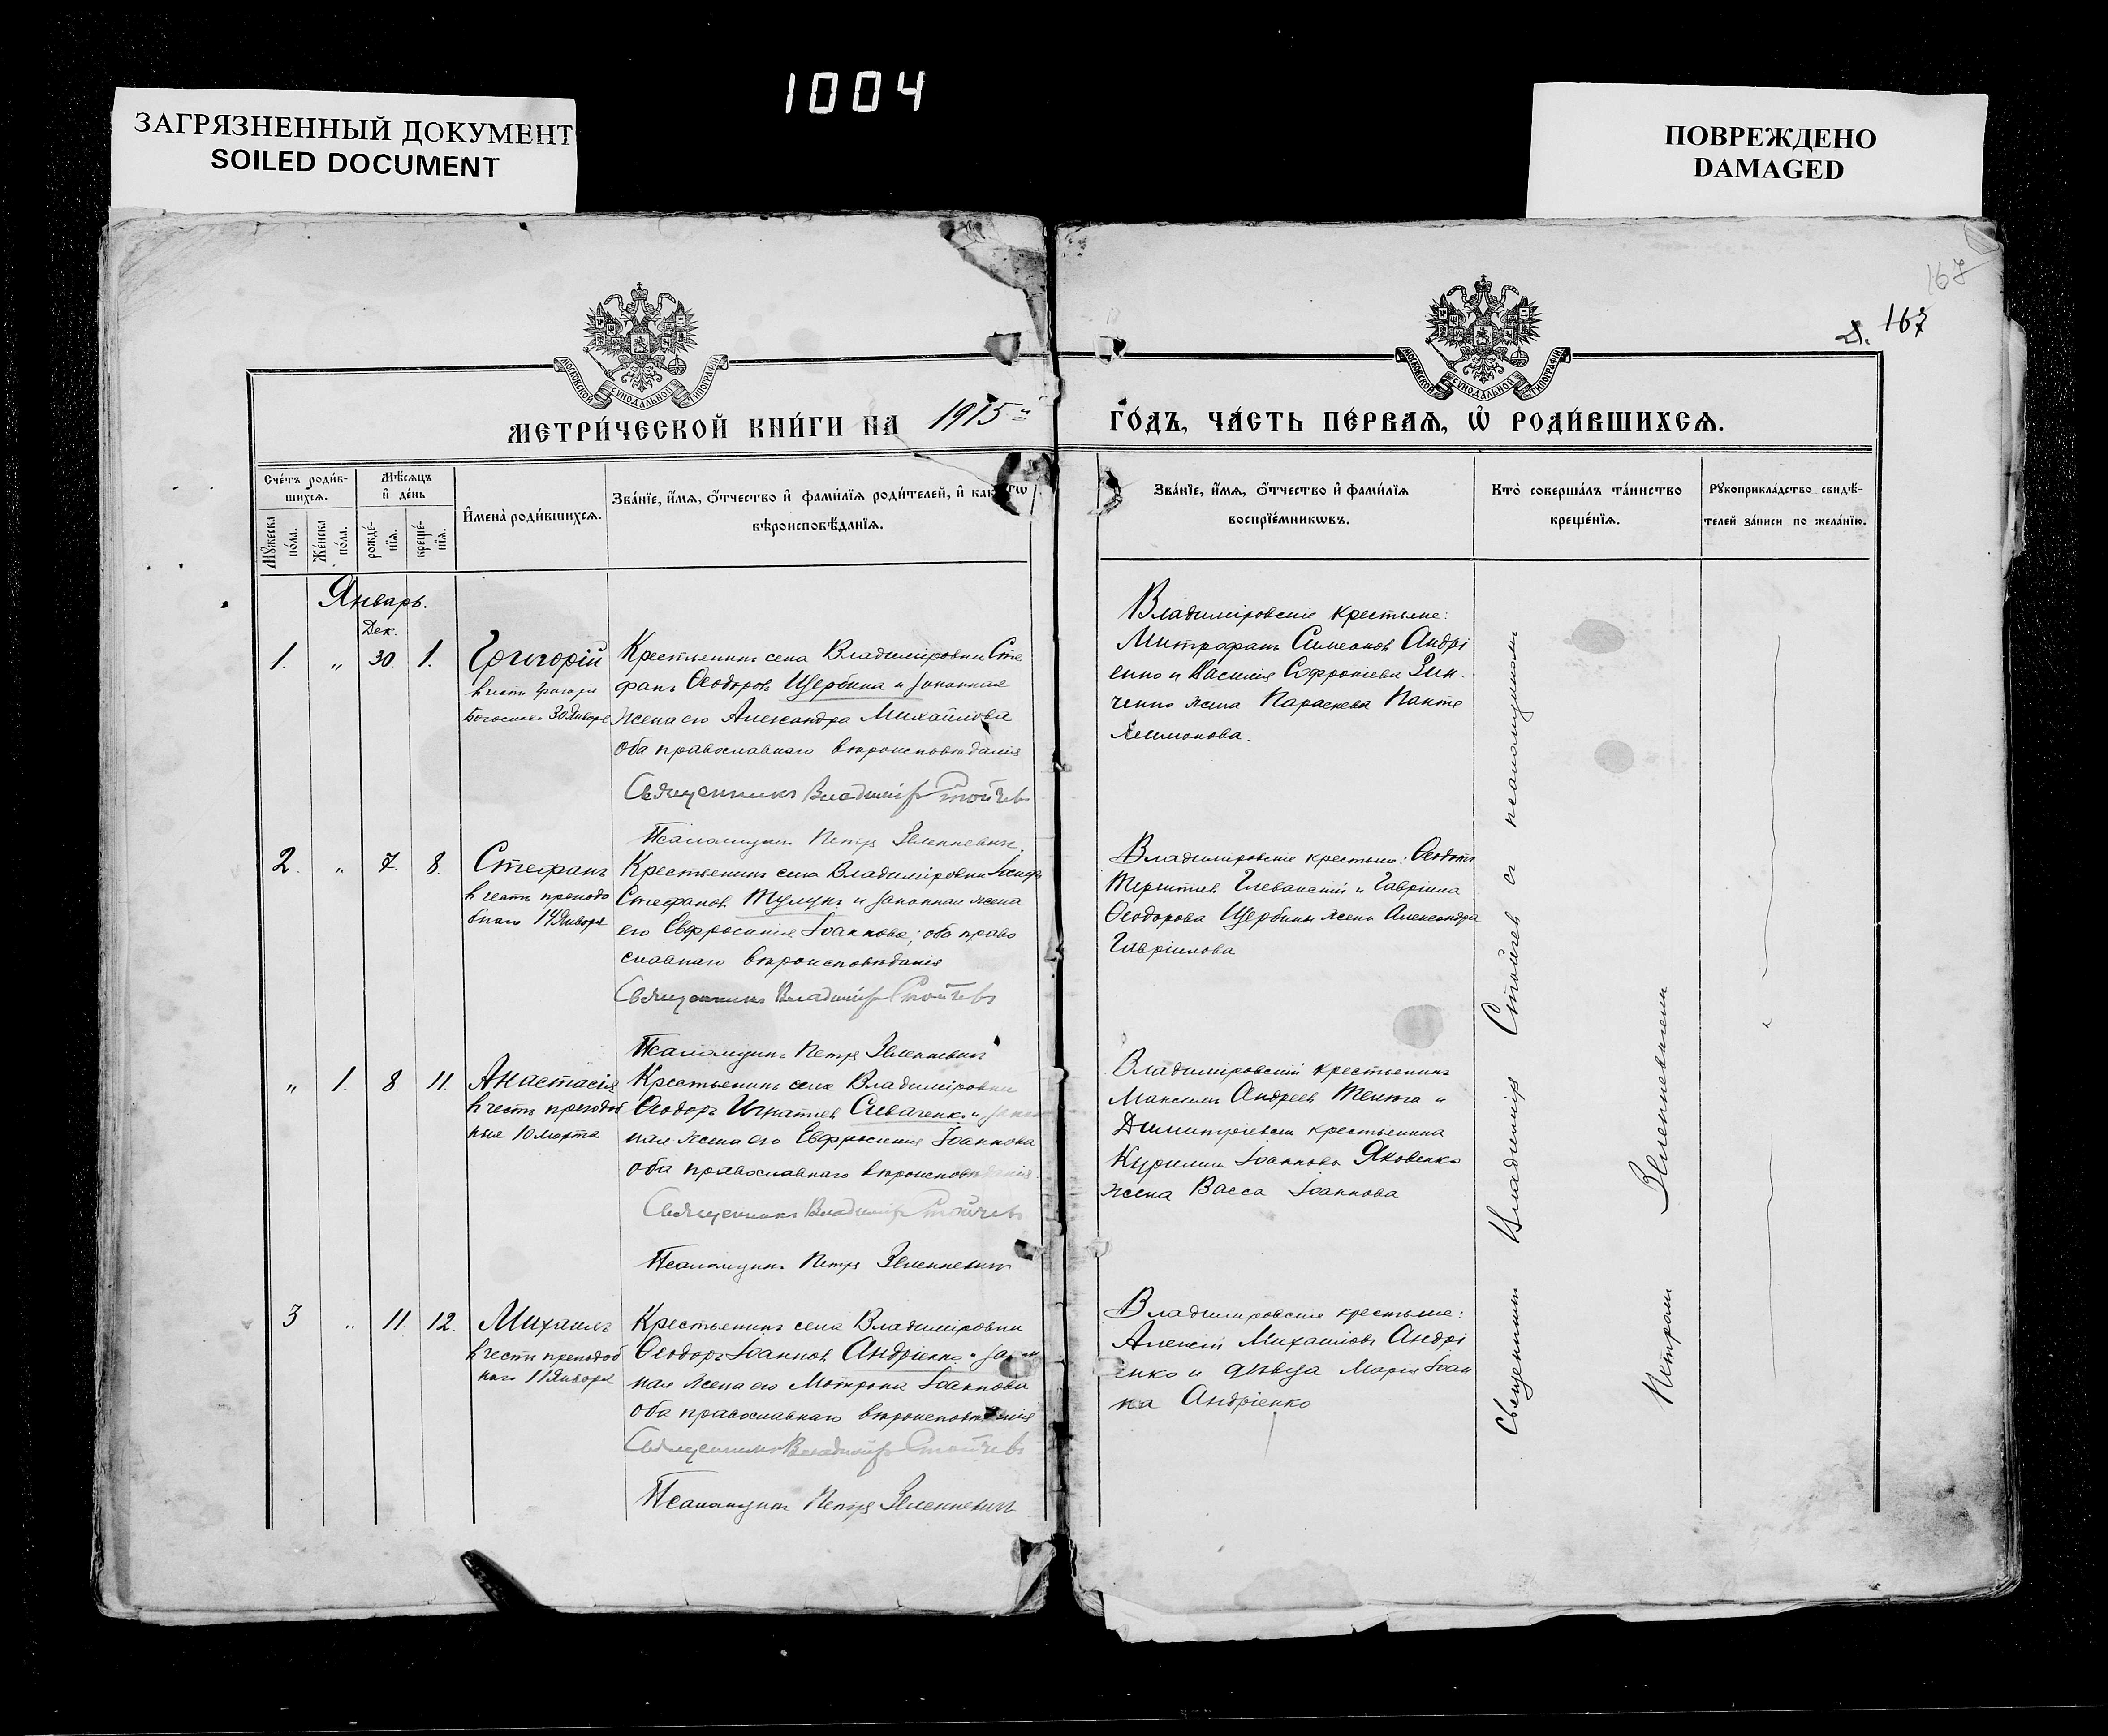 1004
ЗАГРЯЗНЕННЫЙ ДОКУМЕНТ
SOILED DOCUMENT
ПОВРЕЖДЕНО
DAMAGED
167
Л. 167
МОСКОВСКОЙ СУНОДАЛЬНОЙ ТИПОГРАФІИ
МОСКОВСКОЙ СУНОДАЛЬНОЙ ТИПОГРАФІИ
МЕТРИ́ЧЕСКОЙ КНИ́ГИ НА 1915й
ГО́ДЪ, ЧА́СТЬ ПЕ́РВАЯ, Ѡ҆ РОДИ́ВШИХСЯ.
Сче́тъ роди́в-
шихся.
Мꙋжеска по́ла.
Же́нска по́ла.
Мѣ́сяцъ
и҆ де́нь
рожде́-
нїя.
креще́-
нїя.
И҆мена̀ роди́вшихся.
Зва́нїе, и҆́мя, ѻ҆́тчество и҆ фами́лїя роди́телей, и҆
вѣроисповѣ́данїя.
Зва́нїе, и҆́мя, ѻ҆́тчество и҆ фами́лїя
воспрїе́мникѡвъ.
Кто̀ соверша́лъ та́инство
креще́нїя.
Рꙋкоприкла́дство свидѣ́-
телей за́писи по жела́нїю.
Январь.
Дек.
1. " 30. 1. Григорій
в честь Григорія
Богослова 30 Января
Крестьянинъ села Владиміровки Сте
фанъ Ѳеодоровъ Щербина и законная
жена его Александра Михайлова
оба православнаго вѣроисповѣданія
Священникъ Владиміръ Стойчевъ
Псаломщикъ Петръ Зеленкевичъ.
Владиміровскіе крестьяне:
Митрофанъ Симеоновъ Андрі
енко и Василія Софроніева Зин.
ченко жена Параскева Панте
леимонова.
2. " 7. 8. Стефанъ
в честь преподо
бнаго 14 Января
Крестьянинъ села Владиміровки Іосифъ
Стефановъ Тулупъ и законная жена
его Евфросинія Іоаннова; оба право
славнаго вѣроисповѣданія
Священникъ Владиміръ Стойчевъ
Псаломщикъ Петръ Зеленкевичъ
Владиміровскіе крестьяне: Ѳеодотъ
Терентіевъ Глеванскій и Гавріила
Ѳеодорова Щербины жена Александра
Гавріилова
" 1. 8. 11. Анастасія
в честь преподоб
ныя 10 марта
Крестьянинъ села Владиміровки
Ѳеодоръ Игнатіевъ Сиваченко и закон
ная жена его Евфросинія Іоаннова
оба православнаго вѣроисповѣданія
Священникъ Владиміръ Стойчевъ
Псаломщикъ Петръ Зеленкевичъ
Владиміровскій крестьянинъ
Максимъ Андреевъ Тента и
Димитріевски крестьянина
Курилы Іоаннова Яковенко
жена Васса Іоаннова
3 " 11. 12. Михаилъ
в честь преподоб
наго 11 Января
Крестьянинъ села Владиміровки
Ѳеодоръ Іоанновъ Андріенко и закон
ная жена его Мотрона Іоаннова
оба православнаго вѣроисповѣданія
Священникъ Владиміръ Стойчевъ
Псаломщикъ Петръ Зеленкевичъ
Владиміровскіе крестьяне:
Алексій Михаиловъ Андрі
енко и дѣвица Марія Іоан
на Андріенко
Священникъ Владиміръ Стойчев съ псаломщикомъ
Петромъ Зеленкевичемъ